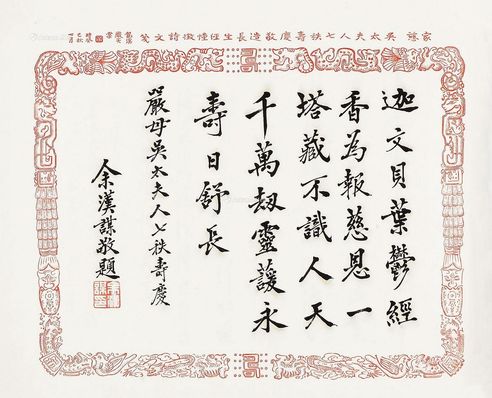 家慈 吳太夫人七秩壽慶敬造長生幢徵詩文箋
迦文貝葉鬱經
香為報慈恩一
塔藏不識人天
千萬劫靈蘐永
壽日舒長
嚴母吳太夫人七秩壽慶
余漢謀敬題